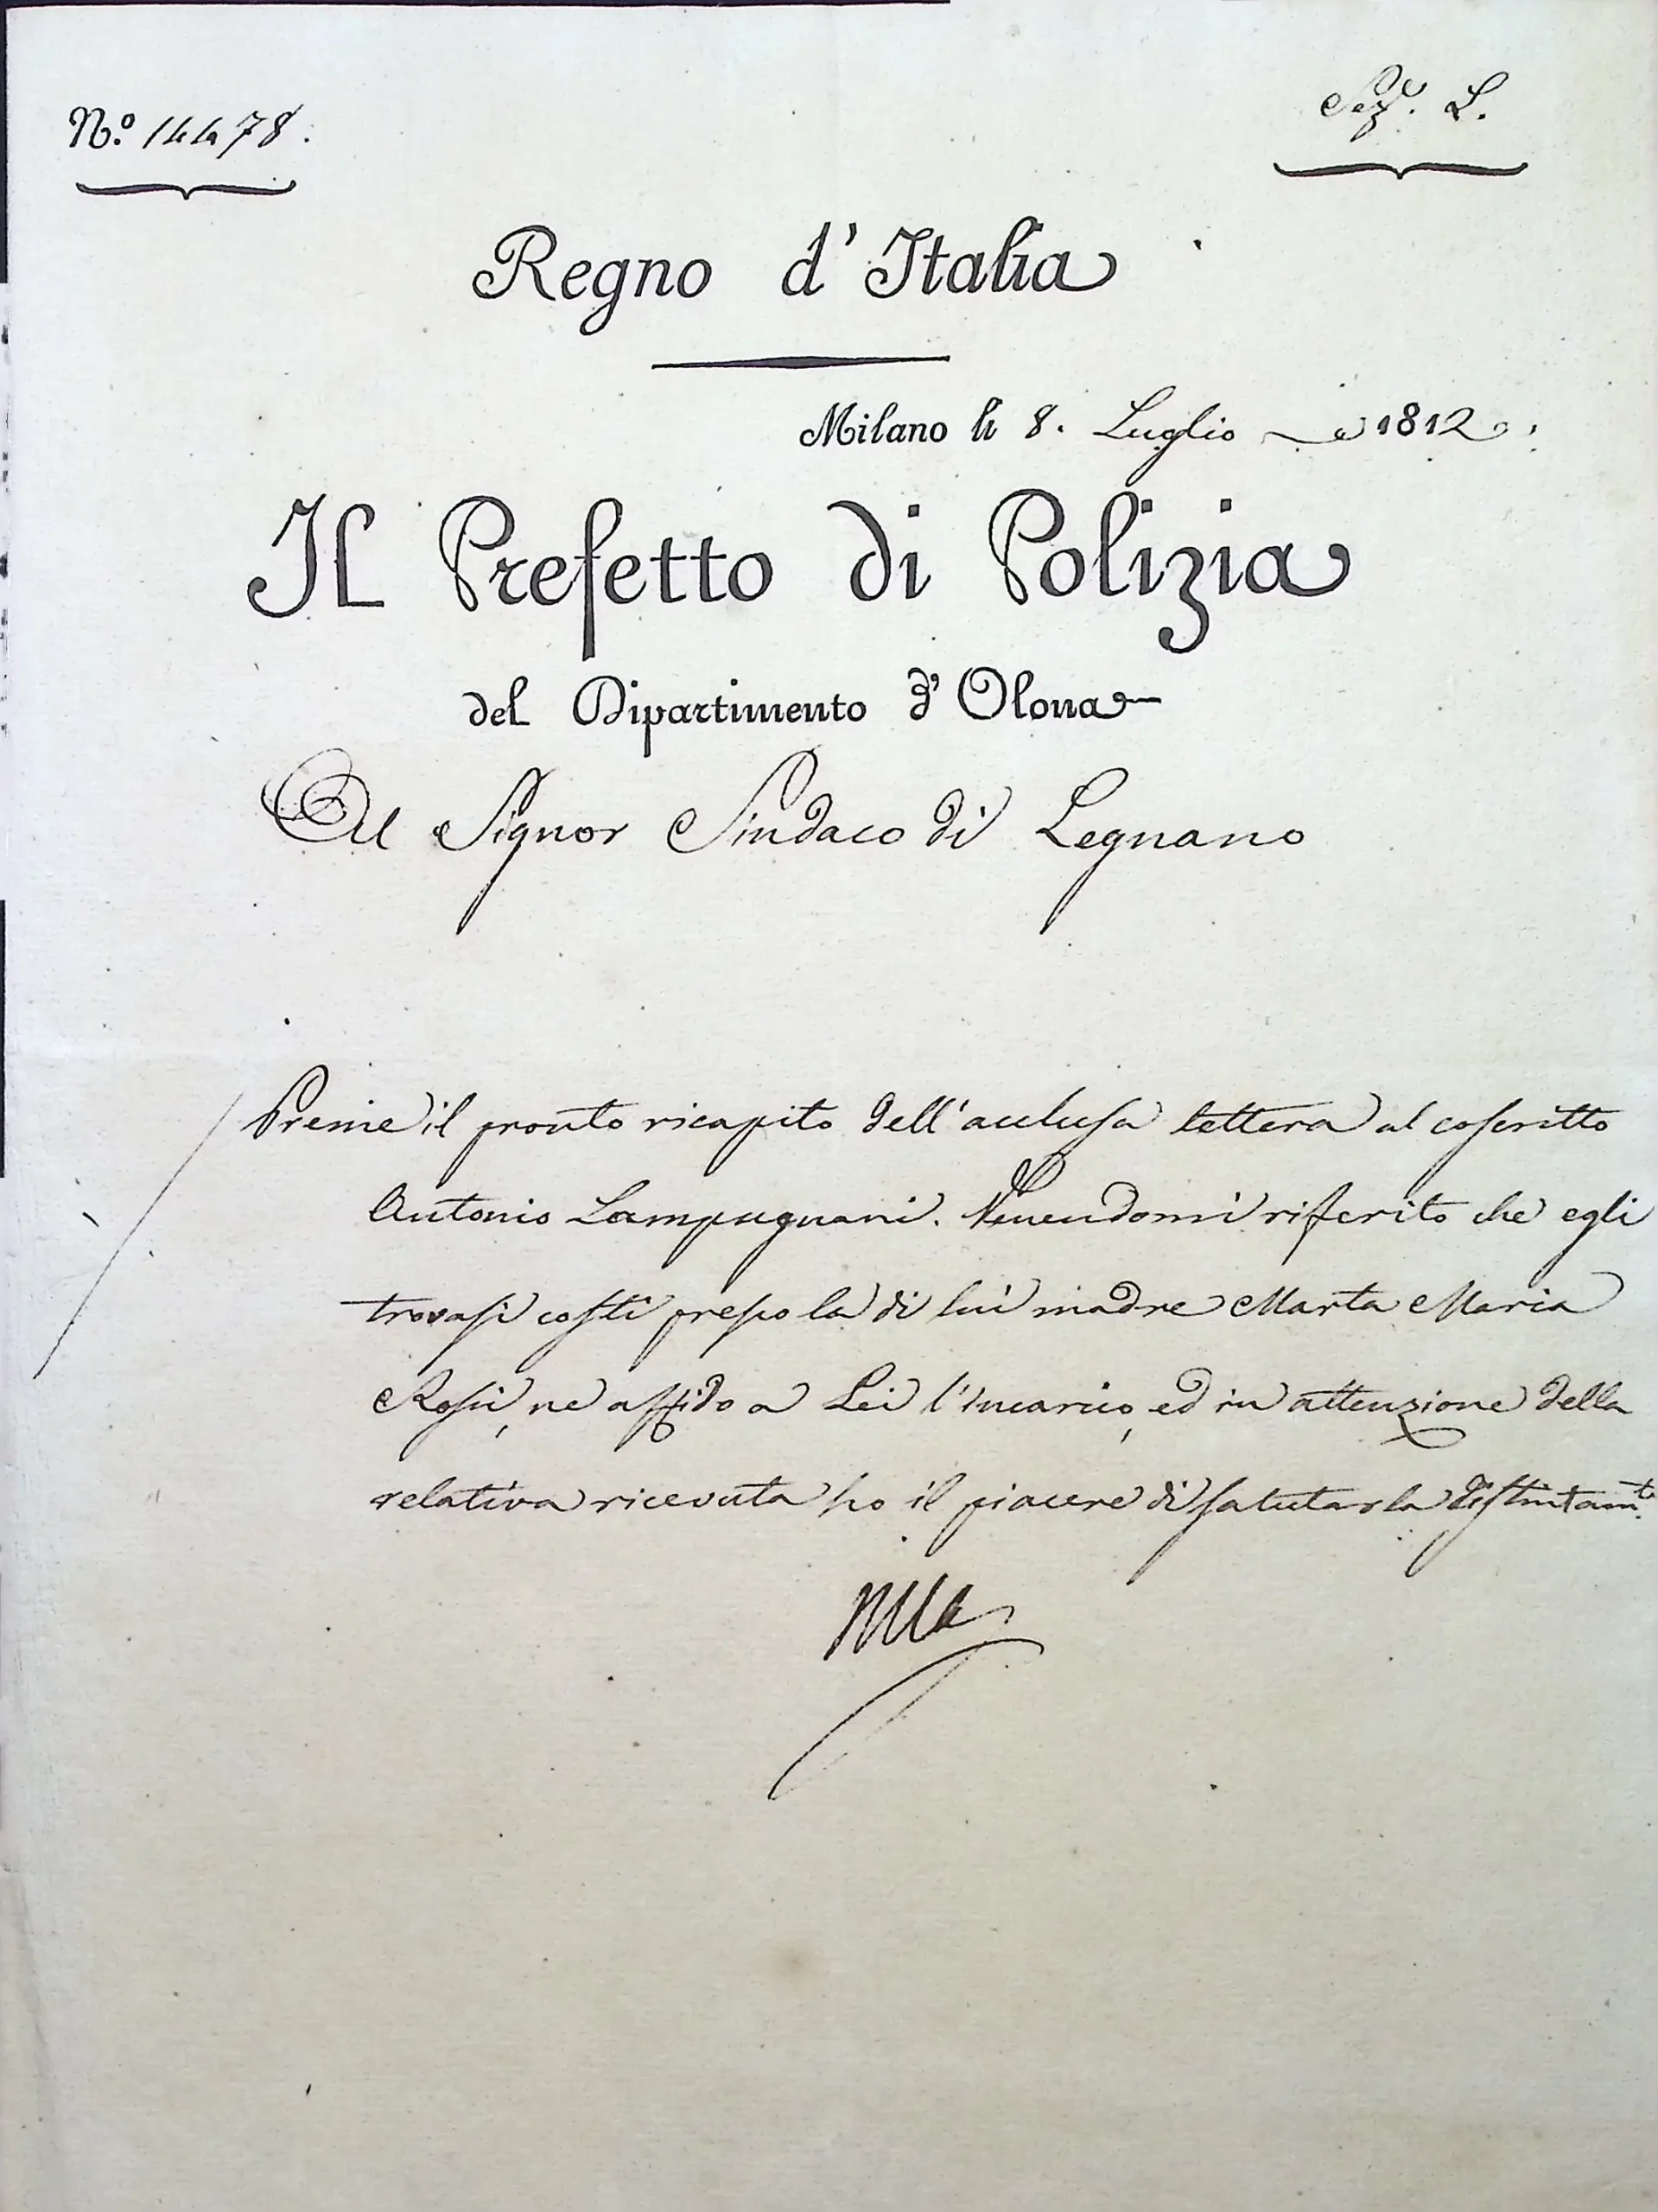 N.º 14478.
Sez.e L.
Regno d'Italia
Milano li 8. Luglio 1812.
Il Prefetto di Polizia
del Dipartimento d'Olona
Al Signor Sindaco di Legnano
Preme il pronto ricapito dell'acclusa lettera al coscritto
Antonio Lampugnani. Venendomi riferito che egli
trovasi costì presso la di lui madre Marta Maria
Rossi, ne affido a Lei l'incarico, ed in attenzione della
relativa ricevuta ho il piacere di salutarla distintam.te